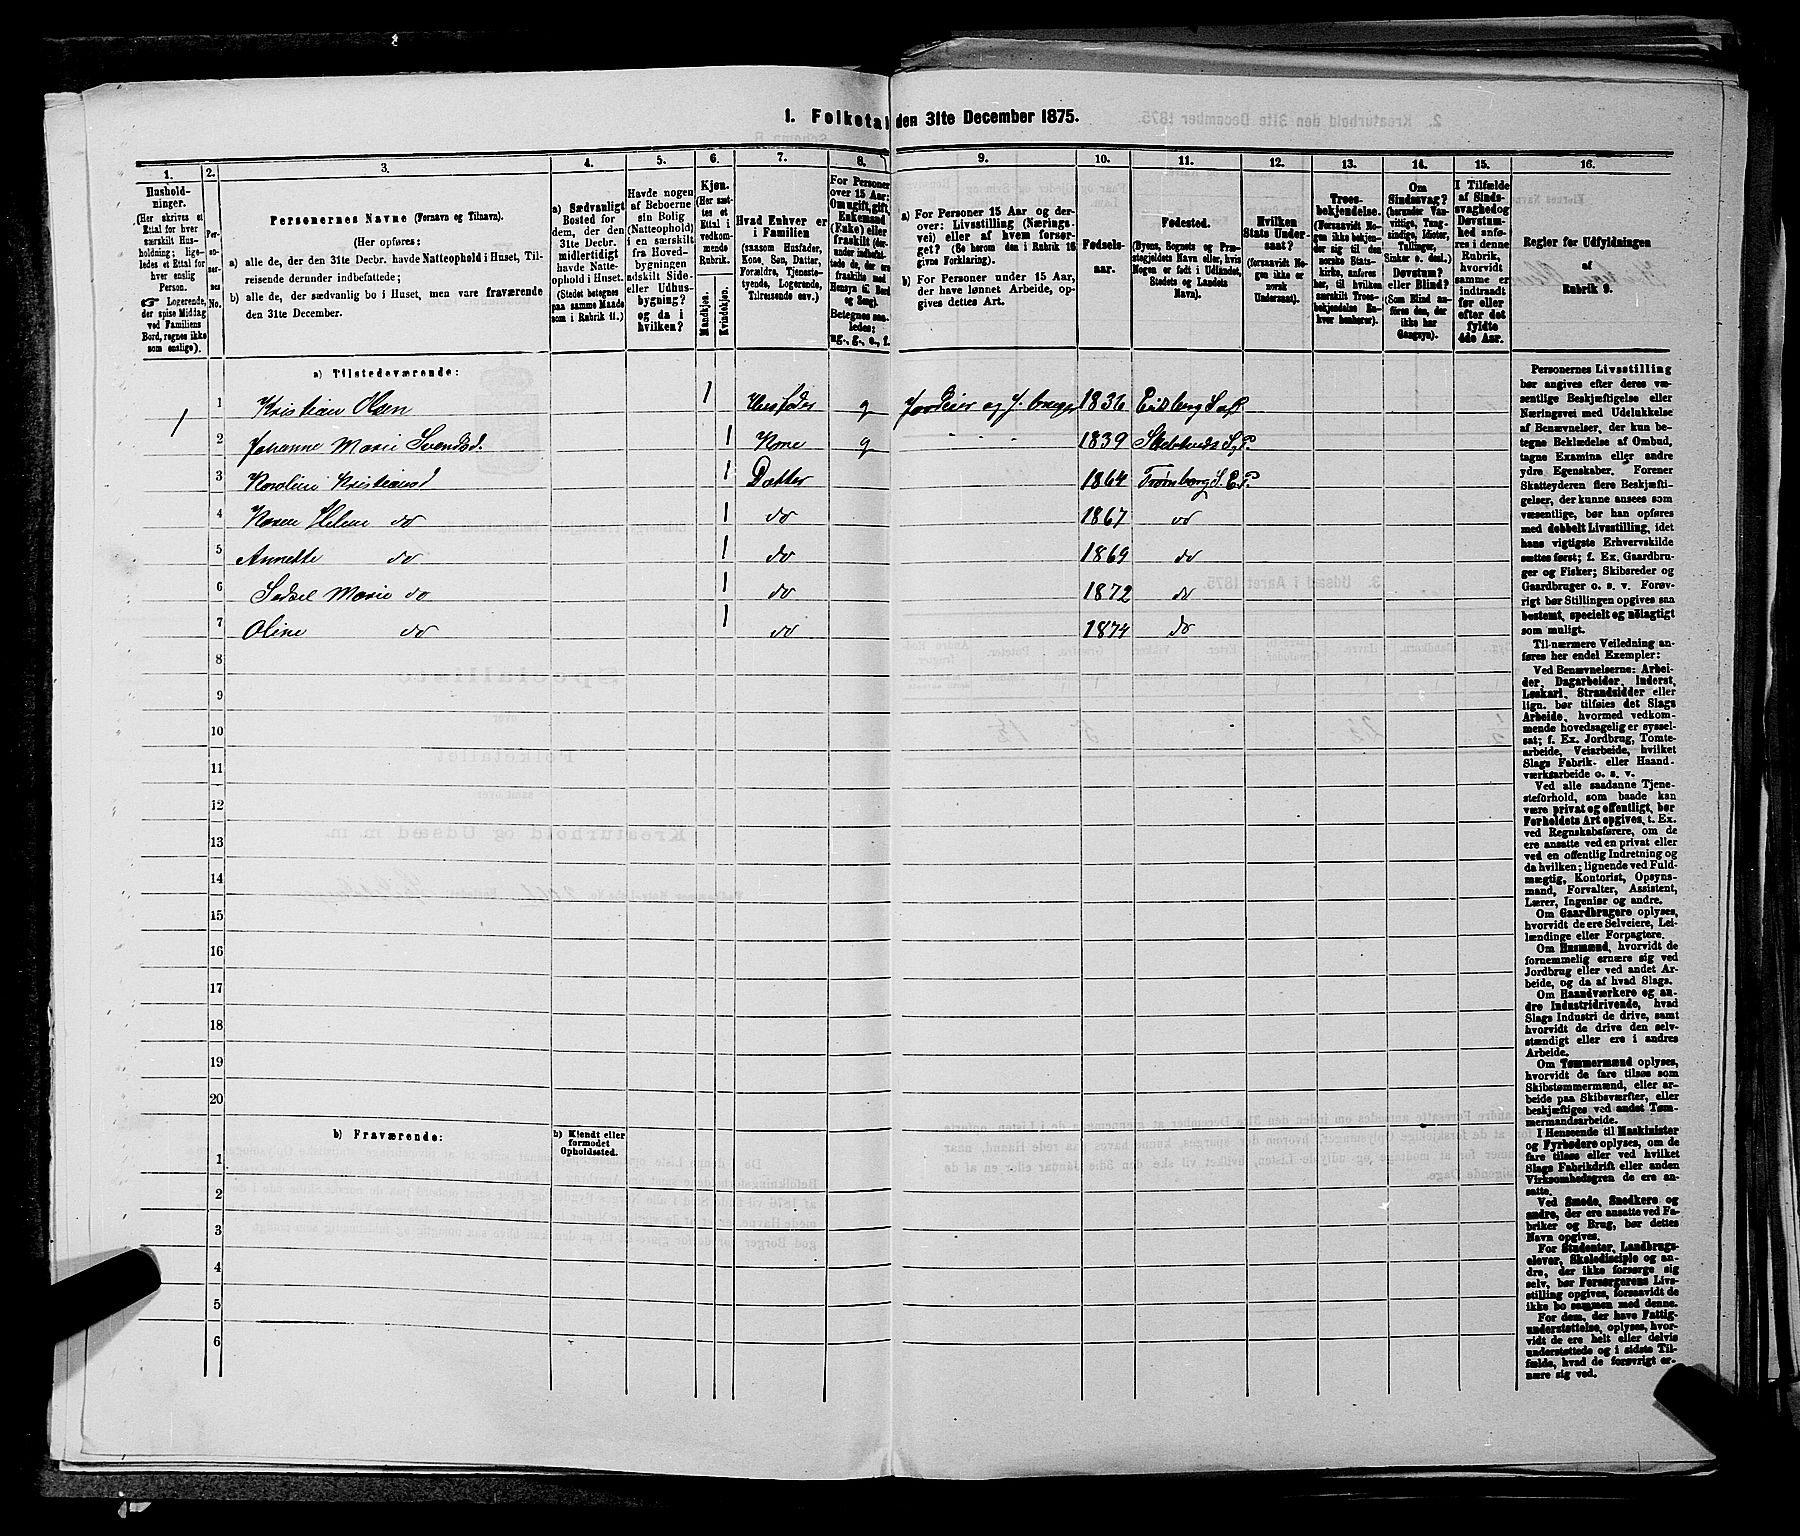 1. Folketal den 31te December 1875.
1. 2. 3. 4. 5. 6. 7. 8. 9. 10. 11. 12. 13. 14. 15. 16.
Husholdninger.
(Her skrives et
Ettal for hver
særskilt Husholdning;
ligeledes et Ettal for
hver enslig
Person.
☞ Logerende,
der spise Middag
ved Familiens
Bord, regnes ikke
som enslige).
Personernes No.
Personernes Navne (Fornavn og Tilnavn).
(Her opføres:
a) alle de, der den 31te Decbr. havde Natteophold i Huset, Tilreisende derunder indbefattede;
b) alle de, der sædvanlig bo i Huset, men vare fraværende
den 31te December.
a) Sædvanligt
Bosted for
dem, der den
31te Decbr.
midlertidigt
havde Natteophold i Huset.
(Stedet betegnes
paa samme Maade
som i Rubrik 11.)
Havde nogen
af Beboerne
sin Bolig
(Natteophold)
i en særskilt
fra Hovedbygningen
adskilt Side-
eller Udhusbygning?
og da i
hvilken?
Kjøn.
(Her sættes et
Ettal i
vedkommende
Rubrik.
Mandkjøn.
Kvindekjøn.
Hvad Enhver er
i Familien
(saasom Husfader,
Kone, Søn, Datter,
Forældre, Tjenestetyende, Logerende,
Tilreisende osv.)
For Personer
over 15 Aar:
Om ugift, gift,
Enkemand
(Enke) eller
fraskilt (derunder indbefattede de, der ere
fraskilte med
Hensyn til Bord
og Seng).
Betegnes saaledes:
ug., g., e., f.
a) For Personer 15 Aar og derover: Livsstilling (Næringsvei) eller af hvem forsørget? (Se herom den i Rubrik 16
givne Forklaring).
b) For Personer under 15 Aar,
der have lønnet Arbeide, opgives dettes Art.
Fødselsaar.
Fødested.
(Byens, Sognets og Præstegjeldets Navn eller, hvis
Nogen er født i Udlandet,
Stedets og Landets
Navn).
Hvilken
Stats Undersaat?
(forsaavidt Nogen ikke er
norsk
Undersaat).
Troesbekjendelse.
(Forsaavidt Nogen ikke bekjender sig til den
norske Statskirke, anføres
her, til hvilken
særskilt Troesbekjendelse Enhver henhører).
Om
Sindssvag?
(herunder Vanvittige, Tungsindige, Idioter,
Tullinger,
Sinker o. desl.)
Døvstum?
eller Blind?
(Som Blind anføres den, der
ikke har
Gangsyn).
I Tilfælde
af Sindssvaghed og
Døvstumhed anføres i denne
Rubrik,
hvorvidt
samme er
indtraadt
før eller
efter det
fyldte
4de Aar.
Regler for Udfyldningen
af
Rubrik 9.
a) Tilstedeværende:
1 1 Kristian Olsen 1 Husfader g Jordeier og 1836 Eidsberg S og P
2 Johanne Marie Svendsd. 1 Kone g 1839 S. P.
3 Karoline Kristiansd 1 Datter 1864 Trømborg S. E. P.
4 Karen Helene do 1 do 1867 do
5 Annette do 1 do 1869 do
6 Marie do 1 do 1872 do
7 Oline do 1 do 1874 do
8
9
10
11
12
13
14
15
16
17
18
19
20
b) Fraværende:
b) Kjendt eller
formodet
Opholdssted.
1
2
3
4
5
6
Personernes Livsstilling
bør angives efter deres væsentlige Beskjæftigelse eller
Næringsvei med Udelukkelse
af Benævnelser, der kun betegne Beklædelse af Ombud,
tagne Examina eller andre
ydre Egenskaber. Forener
Skatteyderen flere Beskjæftigelser, der kunne ansees som
væsentlige, bør han opføres
med dobbelt Livsstilling, idet
hans vigtigste Erhvervskilde
sættes først; f. Ex. Gaardbruger og Fisker; Skibsreder og
Gaardbruger o. s. v. Forøvrigt bør Stillingen opgives saa
bestemt, specielt og nøiagtigt
som muligt.
Til nærmere Veiledning anføres her endel Exempler:
Ved Benævnelserne: Arbeider, Dagarbeider, Inderst,
Løskarl, Strandsidder eller
lign. bør tilføies det Slags
Arbeide, hvormed vedkommende hovedsagelig er sysselsat; f. Ex. Jordbrug, Tomtearbeide, Veiarbeide, hvilket
Slags Fabrik- eller Haandværksarbeide o. s. v.
Ved alle saadanne Tjenesteforhold, som baade kan
være privat og offentligt, bør
Forholdets Art opgives, f. Ex.
ved Regnskabsførere, om de
ere ansatte ved en privat eller
ved en offentlig Indretning og
da hvilken; lignende ved Fuldmægtig, Kontorist, Opsynsmand, Forvalter, Assistent,
Lærer, Ingeniør og andre.
Om Gaardbrugere oplyses,
hvorvidt de ere Selveiere, Leilændinge eller Forpagtere.
Om Husmænd, hvorvidt de
fornemmelig ernære sig ved
Jordbrug eller ved andet Arbeide, og da af hvad Slags.
Om Haandværkere og andre Industridrivende, hvad
Slags Industri de drive, samt
hvorvidt de drive den selvstændigt eller ere i andres
Arbeide.
Om Tømmermænd oplyses,
hvorvidt de fare tilsøs som
Skibstømmermænd, eller arbeide paa Skibsværfter, eller
beskjæftiges ved andet Tømmermandsarbeide.
I Henseende til Maskinister
og Fyrbødere oplyses, om de
fare tilsøs eller ved hvilket
Slags Fabrikdrift eller anden
Virksomhedsgren de ere ansatte.
Ved Smede, Snedkere og
andre, der ere ansatte ved Fabriker og Brug, bør dettes
Navn opgives.
For Studenter, Landbrugselever, Skoledisciple og andre, der ikke forsørge sig
selv, bør Forsørgerens Livsstilling opgives, forsaavidt de
ikke bo sammen med denne.
For dem, der have Fattigunderstøttelse, oplyses, hvorvidt de ere helt eller delvis
understøttede og i sidste Tilfælde, hvad de forøvrigt ernære sig ved.